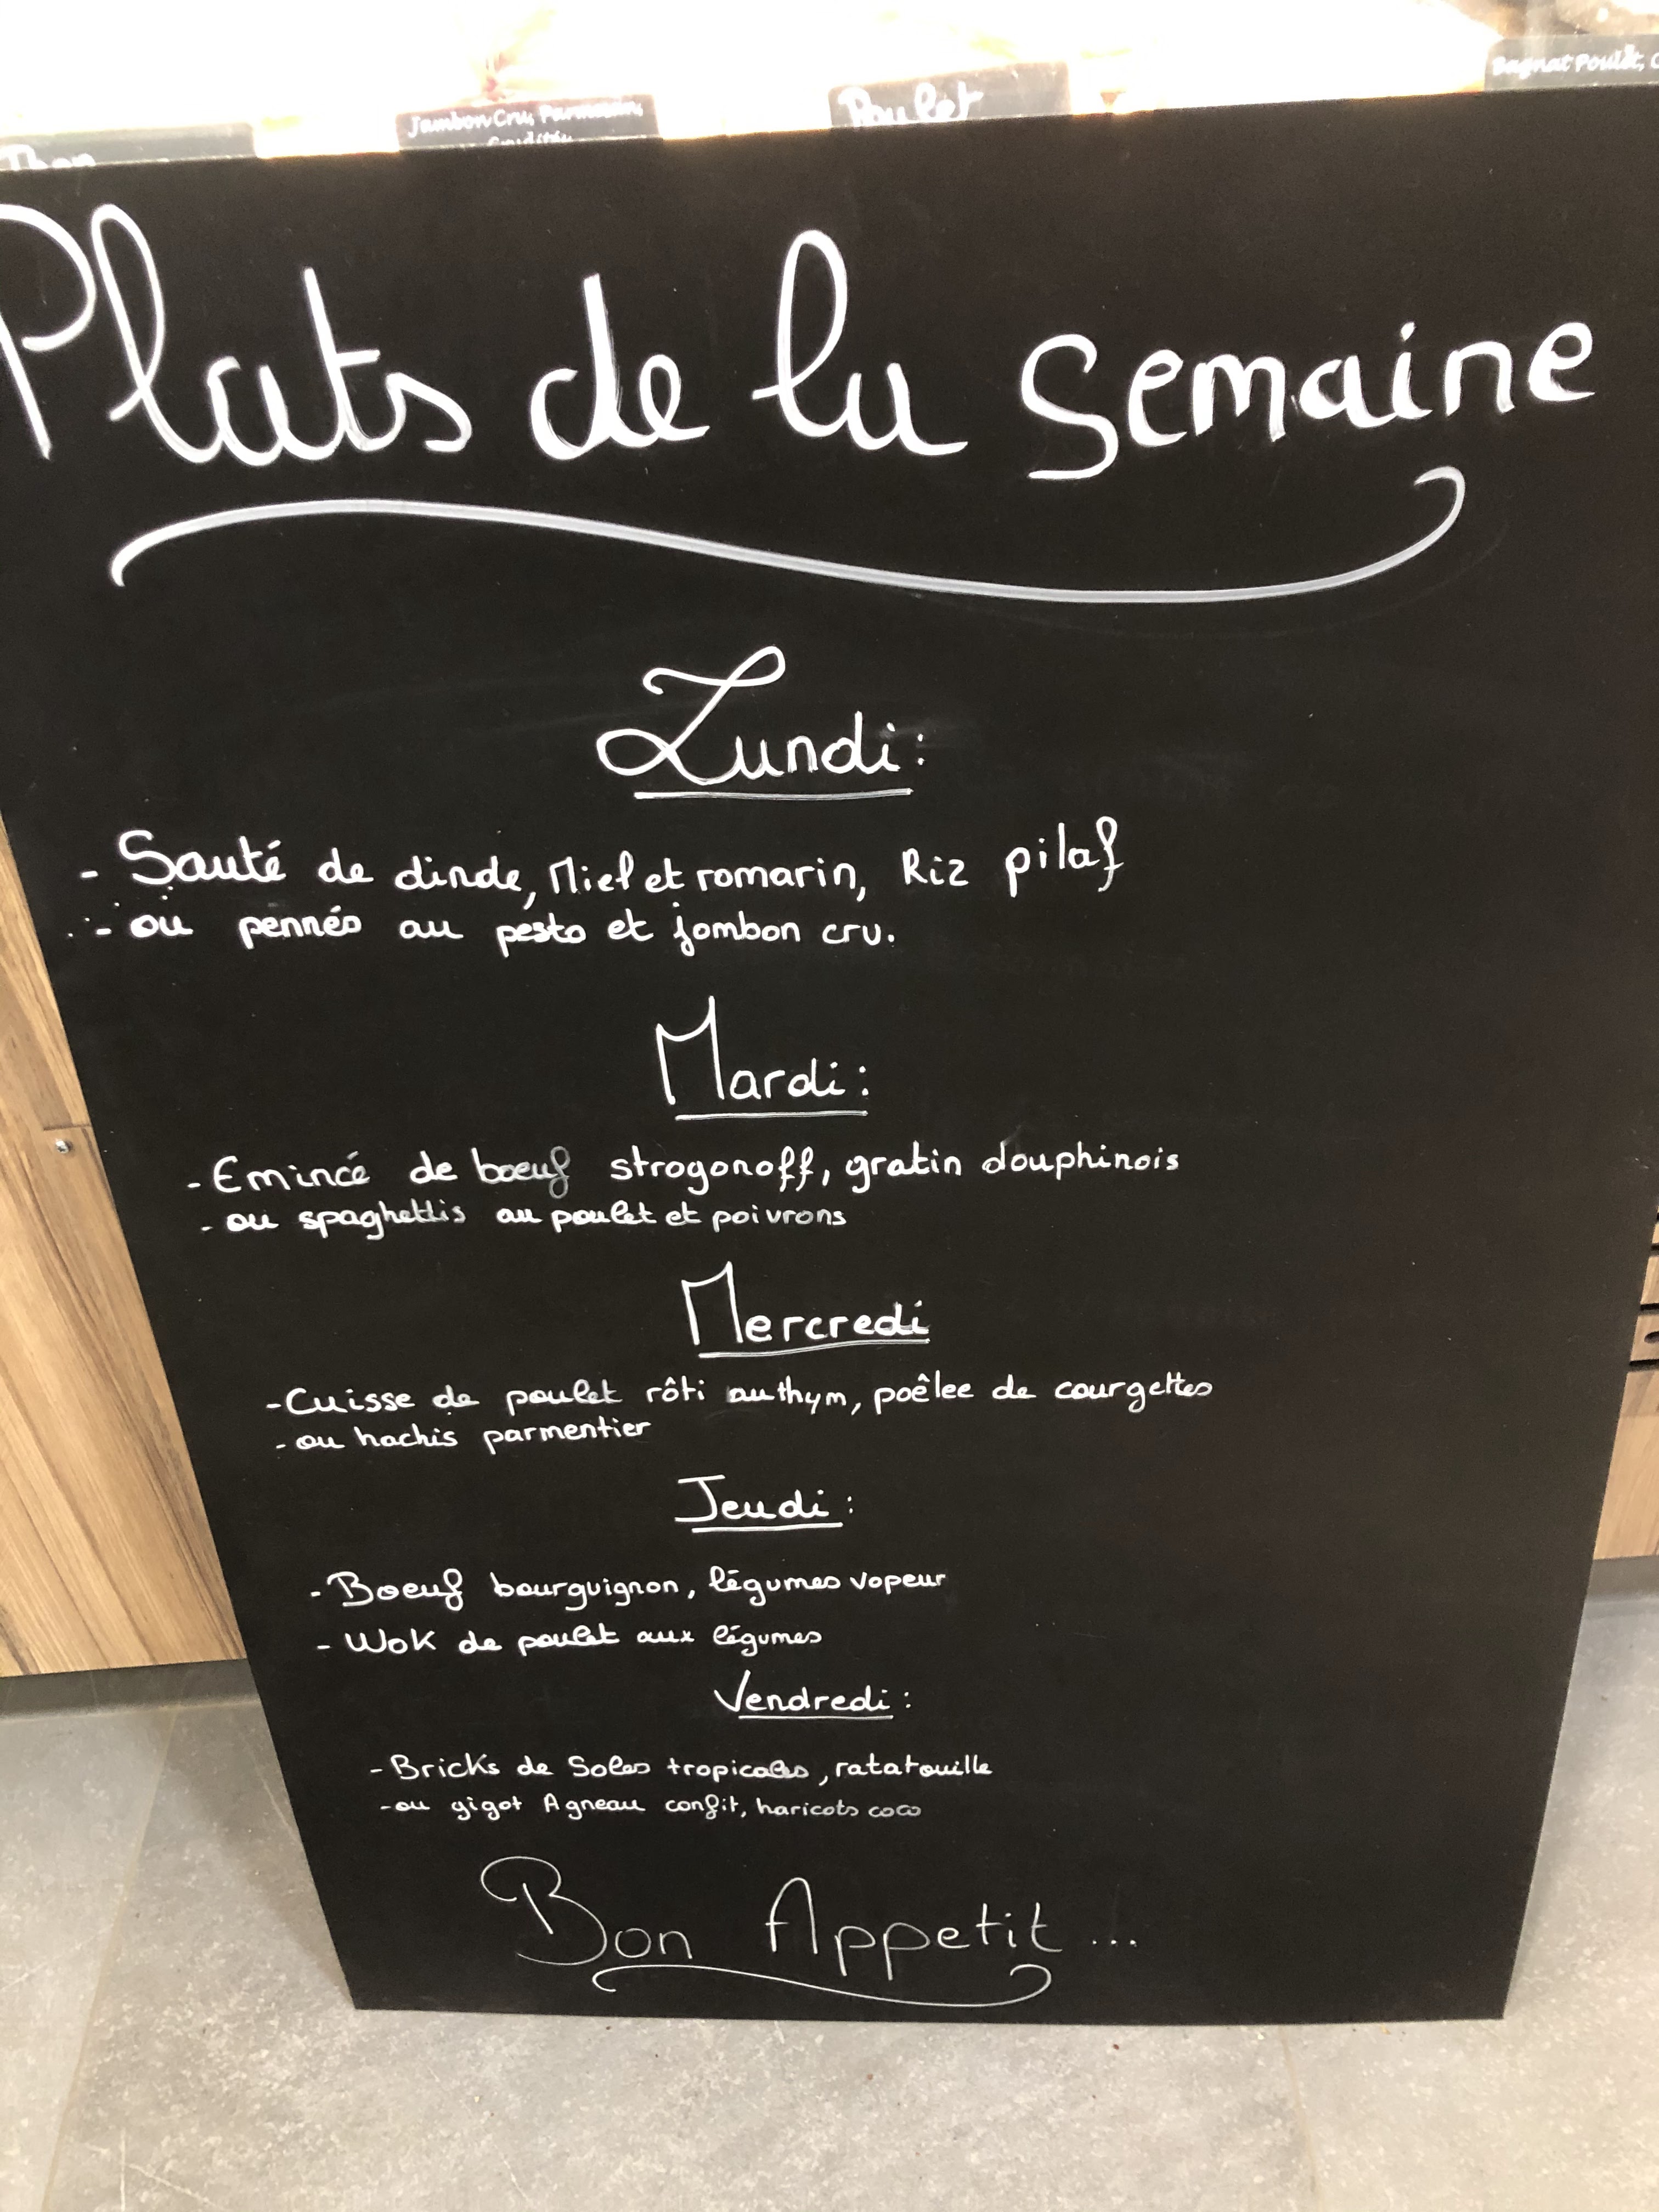 Thon
Jambon Cru, Parmesan,
Crudités
Poulet
Bagnat Poulet, C
Plats de la Semaine
Lundi :
- Sauté de dinde, Miel et romarin, Riz pilaf
- ou pennés au pesto et jambon cru.
Mardi :
- Emincé de boeuf strogonoff, gratin dauphinois
- ou spaghettis au poulet et poivrons
Mercredi
- Cuisse de poulet rôti au thym, poêlee de courgettes
- ou hachis parmentier
Jeudi :
- Boeuf bourguignon, légumes vapeur
- Wok de poulet aux légumes
Vendredi :
- Bricks de Soles tropicales, ratatouille
- ou gigot Agneau confit, haricots coco
Bon Appetit ...